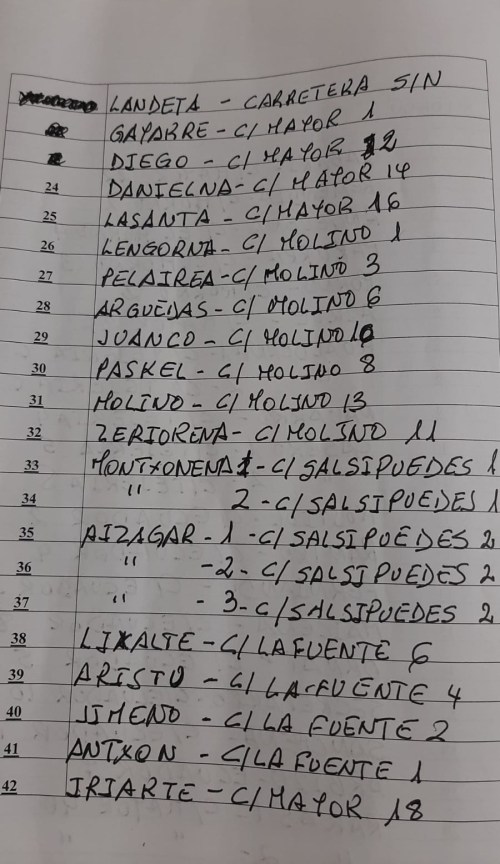 LANDETA - CARRETERA S/N
GAYARRE - C/ MAYOR 1
DIEGO - C/ MAYOR 12
24 DANIELNA - C/ MAYOR 14
25 LASANTA - C/ MAYOR 16
26 LENGORNA - C/ MOLINO 1
27 PELAIREA - C/ MOLINO 3
28 ARGUEDAS - C/ MOLINO 6
29 JUANCO - C/ MOLINO 10
30 PASKEL - C/ MOLINO 8
31 MOLINO - C/ MOLINO 13
32 ZERIORENA - C/ MOLINO 11
33 MONTXONENA 1 - C/ SALSIPUEDES 1
34 " 2 - C/ SALSIPUEDES 1
35 AIZAGAR - 1 - C/ SALSIPUEDES 2
36 " - 2 - C/ SALSIPUEDES 2
37 " - 3 - C/ SALSIPUEDES 2
38 LIXALTE - C/ LA FUENTE 6
39 ARISTU - C/ LA FUENTE 4
40 JIMENO - C/ LA FUENTE 2
41 ANTXON - C/ LA FUENTE 1
42 IRIARTE - C/ MAYOR 18